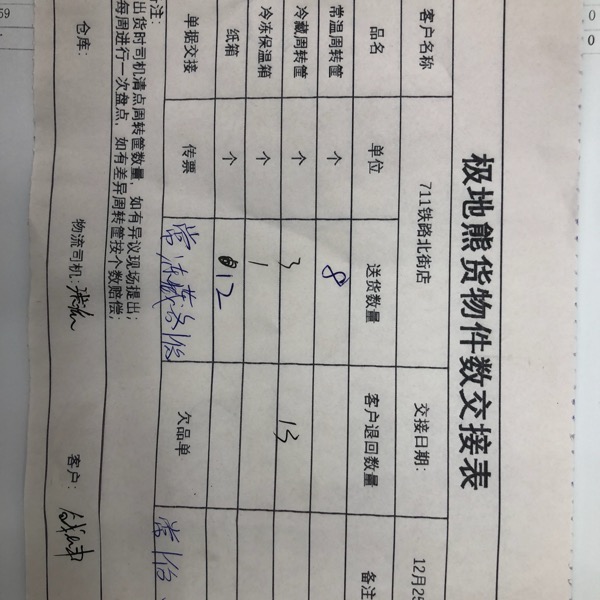 极地熊货物件数交接表
客户名称 711铁路北街店 交接日期: 12月25
品名 单位 送货数量 客户退回数量 备注
常温周转筐 个 8
冷藏周转筐 个 3 13
冷冻保温箱 个 1
纸箱 个 12
单据交接 传票 常冻藏各1份 欠品单 常1份
注:
出货时司机清点周转筐数量,如有异议现场提出;
每周进行一次盘点,如有差异周转筐按个数赔偿;
仓库: 物流司机: 客户:
59
0
0